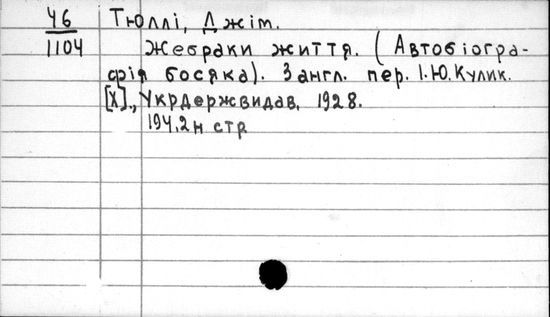 46 Тюллі, Джім.
1104 Жебраки життя. (Автобіогра-
фія босяка). З англ. пер. І.Ю.Кулик.
[Х]., Укрдержвидав, 1928.
194,2н стр